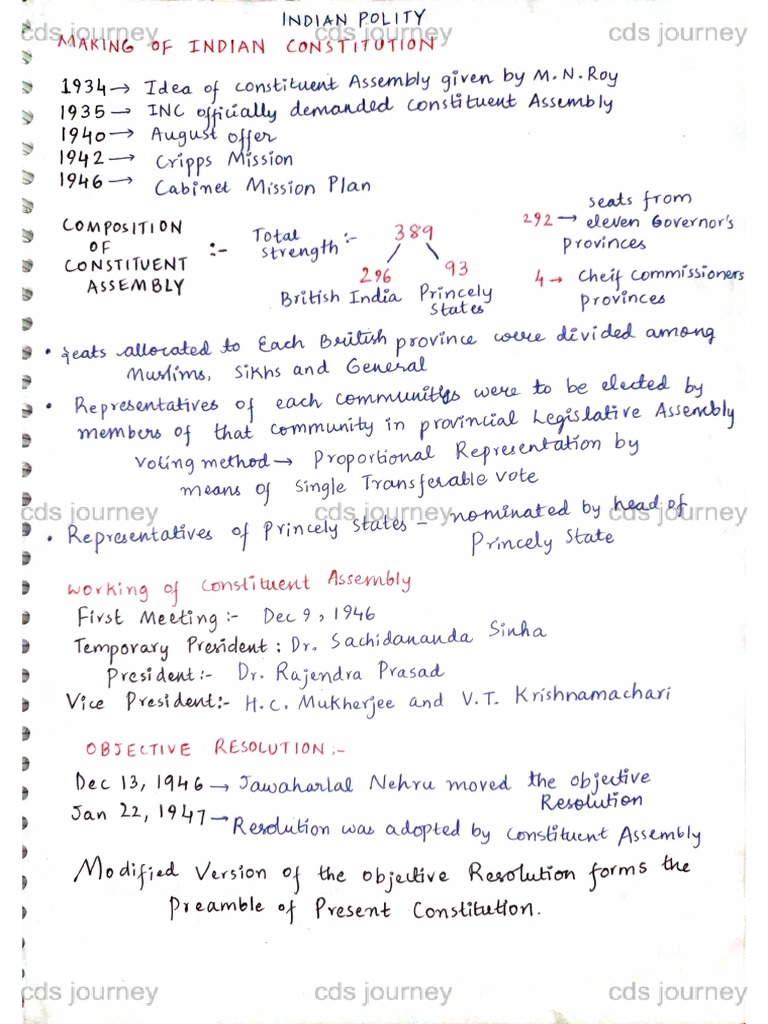 INDIAN POLITY
cds journey cds journey cds journey
MAKING OF INDIAN CONSTITUTION
1934 → Idea of constituent Assembly given by M.N.Roy
1935 → INC officially demanded constituent Assembly
1940 → August offer
1942 → Cripps Mission
1946 → Cabinet Mission Plan
COMPOSITION
OF
CONSTITUENT
ASSEMBLY
:-
Total
strength :-
389
296
British India
93
Princely
States
292 → seats from
eleven Governor's
provinces
4 → Cheif commissioners
provinces
• Seats allocated to Each British province were divided among
Muslims, Sikhs and General
• Representatives of each communities were to be elected by
members of that community in provincial Legislative Assembly
Voting method → Proportional Representation by
means of Single Transferable vote
cds journey cds journey cds journey
• Representatives of Princely States – nominated by head of
Princely State
Working of Constituent Assembly
First Meeting :- Dec 9, 1946
Temporary President : Dr. Sachidananda Sinha
President :- Dr. Rajendra Prasad
Vice President :- H.C. Mukherjee and V.T. Krishnamachari
OBJECTIVE RESOLUTION :-
Dec 13, 1946 → Jawaharlal Nehru moved the objective
Resolution
Jan 22, 1947 → Resolution was adopted by Constituent Assembly
Modified Version of the objective Resolution forms the
Preamble of Present Constitution.
cds journey cds journey cds journey